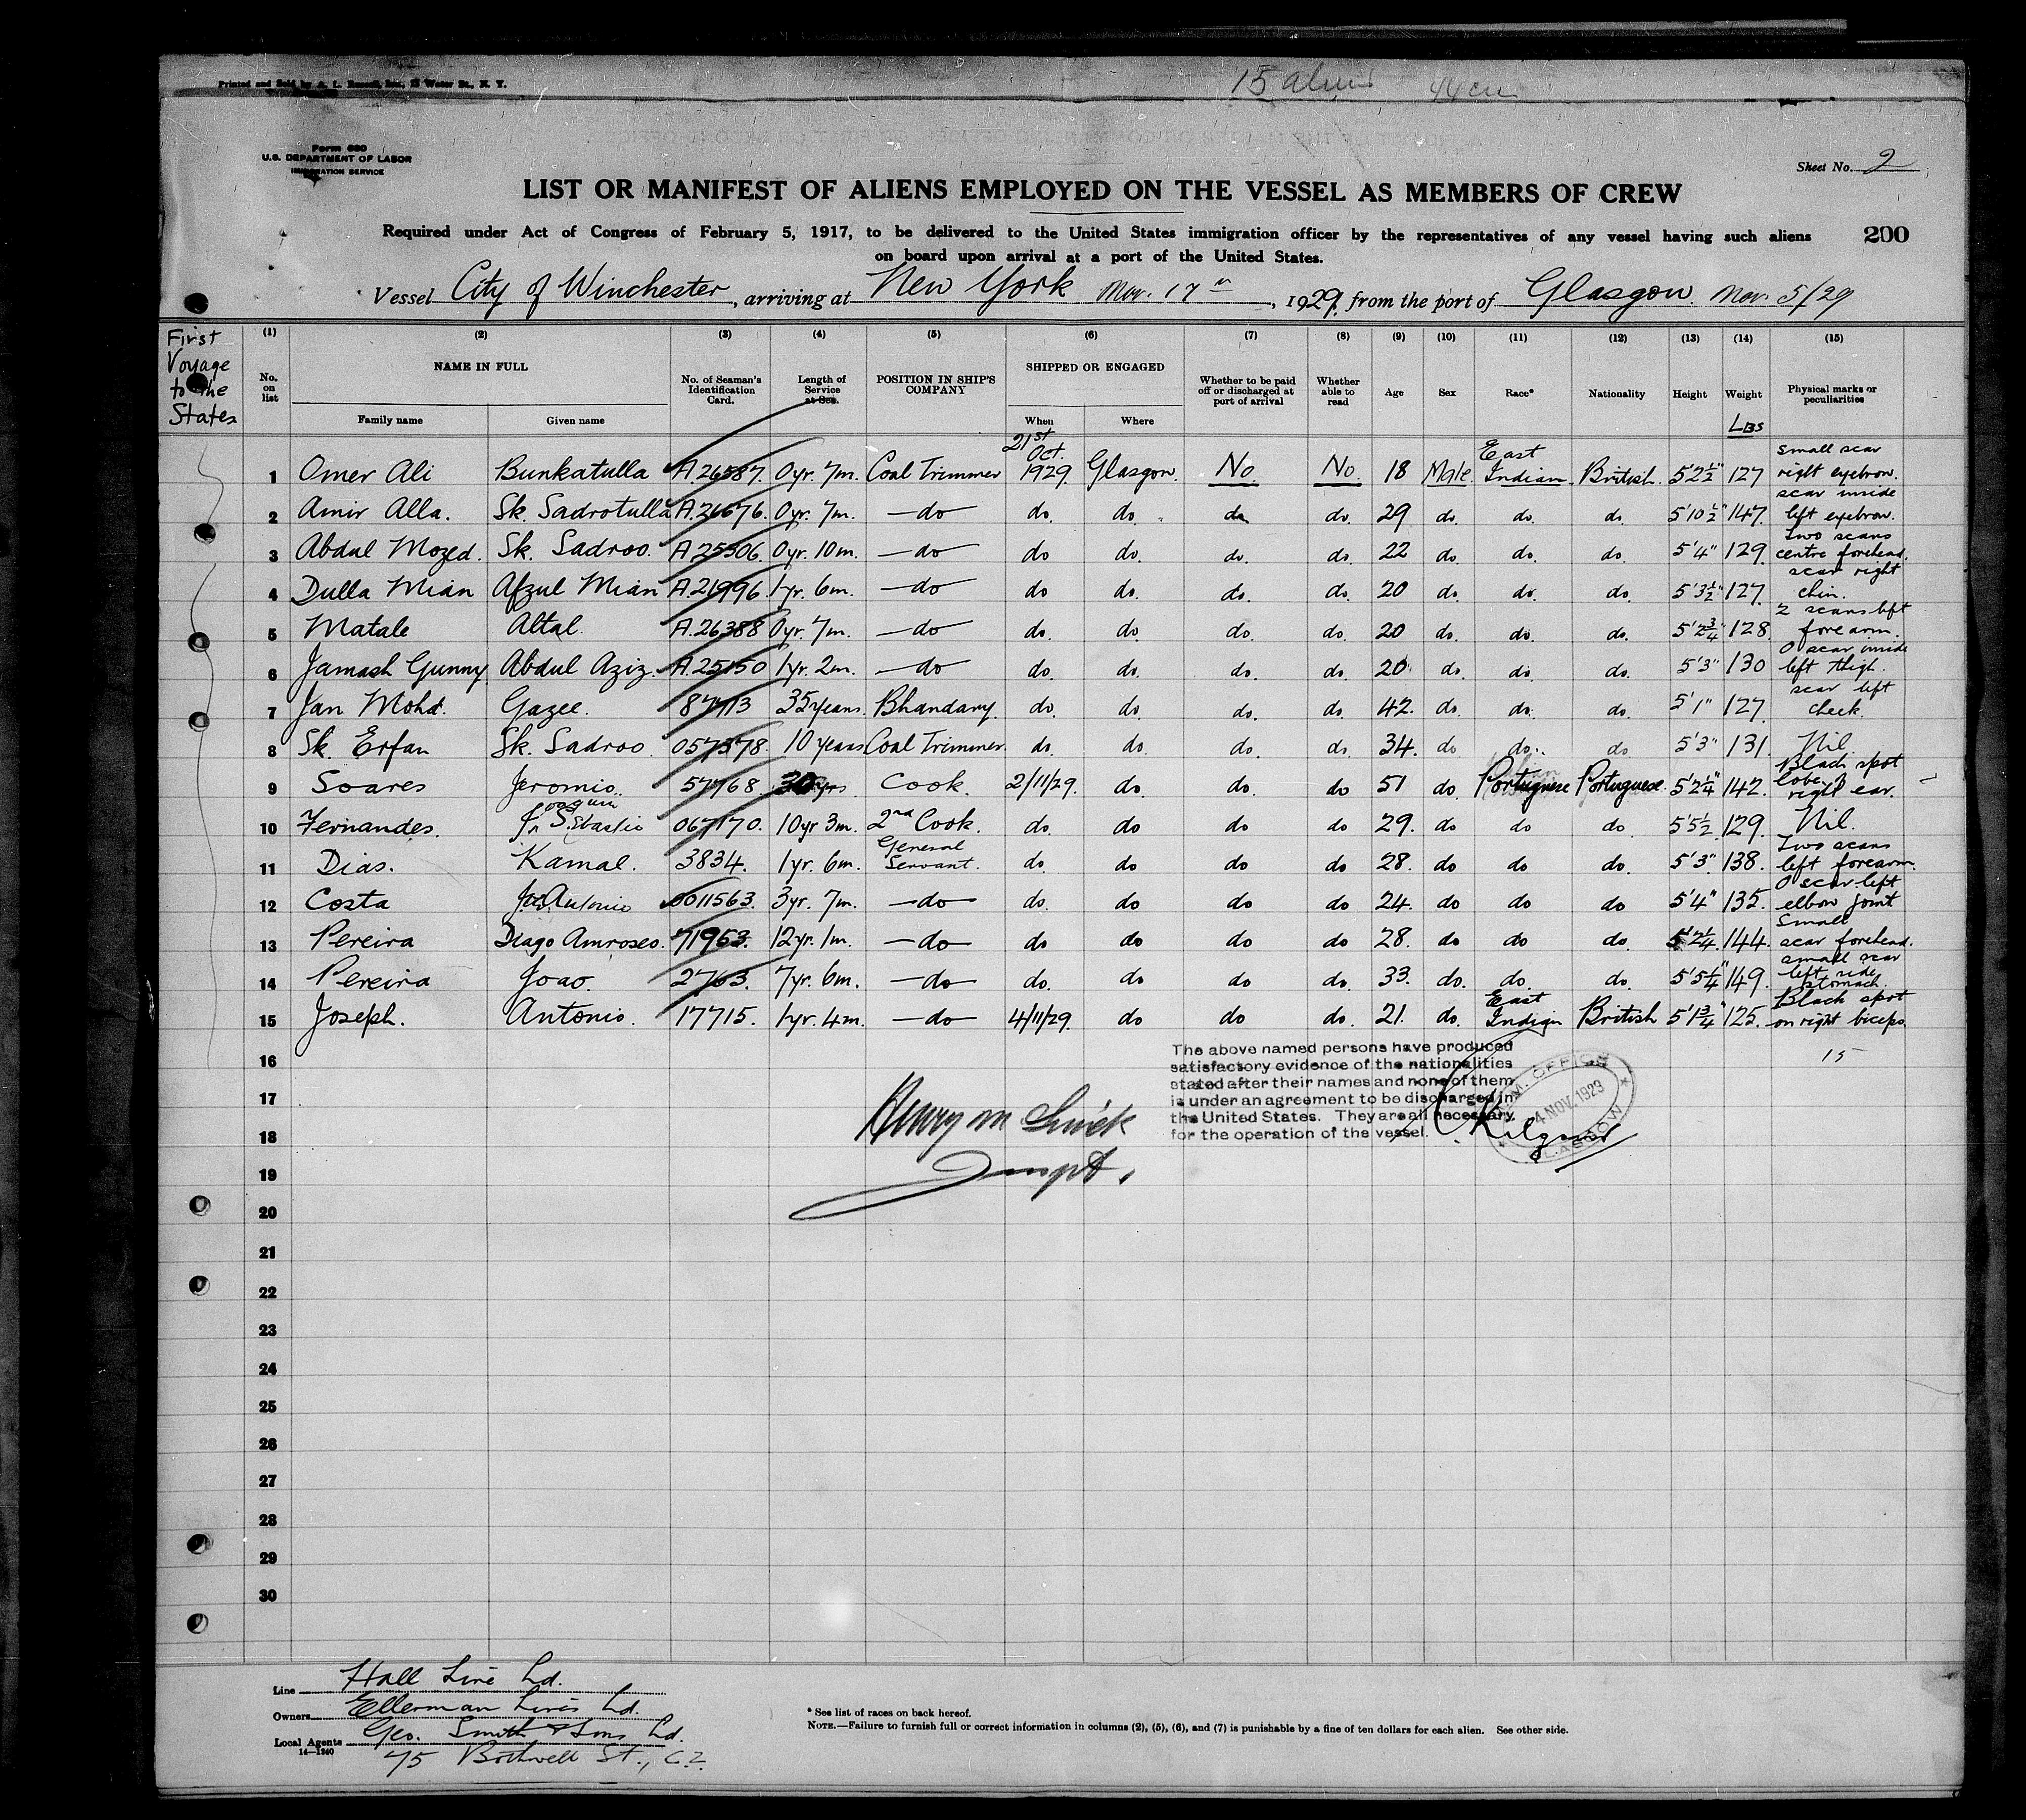 Printed and Sold by A. L. Russell, Inc., Water St., N. Y.
15 44
Form 680
U.S. DEPARTMENT OF LABOR
IMMIGRATION SERVICE
Sheet No. 2
LIST OR MANIFEST OF ALIENS EMPLOYED ON THE VESSEL AS MEMBERS OF CREW
Required under Act of Congress of February 5, 1917, to be delivered to the United States immigration officer by the representatives of any vessel having such aliens
200
on board upon arrival at a port of the United States.
Vessel City of Winchester, arriving at New York Nov. 17th, 1929, from the port of Glasgow. Nov. 5/29
First Voyage to the States
(1) (2) (3) (4) (5) (6) (7) (8) (9) (10) (11) (12) (13) (14) (15)
No. on list NAME IN FULL Family name Given name No. of Seaman's Identification Card. Length of Service at Sea. POSITION IN SHIP'S COMPANY SHIPPED OR ENGAGED When Where Whether to be paid off or discharged at port of arrival Whether able to read Age Sex Race* Nationality Height Weight Lbs Physical marks or peculiarities
1 Omer Ali Bunkatulla A.26587. 0yr. 7m. Coal Trimmer 21st Oct. 1929. Glasgow. No. No. 18 Male. East Indian. British. 5'2½" 127 small scar right eyebrow.
2 Amir Alla. Sk. Sadrotulla A.26676. 0yr. 7m. —do— do. do. do do. 29 do. do. do. 5'10½" 147. scar inside left eyebrow.
3 Abdul Mozed. Sk. Sadroo. A.25306. 0yr. 10m. —do— do do. do. do. 22 do. do. do. 5'4" 129. Two scars centre forehead.
4 Dulla Mian Afzul Mian A.21996. 1yr. 6m. —do— do do. do. do. 20 do. do. do. 5'3½" 127. scar right chin.
5 Matale Altal. A.26388 0yr. 7m. —do— do. do. do. do. 20 do. do. do. 5'2¾" 128. 2 scars left forearm.
6 Jamash Gunny. Abdul Aziz. A.25150 1yr. 2m. —do— do. do. do. do. 20 do. do. do. 5'3" 130 0 scar inside left thigh.
7 Jan Mohd. Gazee. 87713 35years. Bhandary. do. do. do. do. 42. do. do. do. 5'1" 127. scar left cheek.
8 Sk. Erfan Sk. Sadroo. 057378. 10 years Coal Trimmer. do. do. do. do. 34. do do. do 5'3" 131. Nil.
9 Soares Jeromio. 57768. 30yrs Cook. 2/11/29. do. do do 51 do. Portuguese Portuguese. 5'2¼" 142. Black spot lobe of right ear.
10 Fernandes. Joaquim Sebastio 067170. 10yr 3m. 2nd Cook. do. do do do. 29. do do do. 5'5½ 129. Nil.
11 Dias. Kamal. 3834. 1yr. 6m. General Servant. do. do do do. 28. do do do. 5'3" 138. Two scars left forearm.
12 Costa Antonio 0011563. 3yr. 7m. —do— do. do do do. 24. do do do 5'4" 135. 0 scar left elbow joint
13 Pereira Diago Amroseo. 71953. 12yr. 1m. —do— do do do do. 28. do do do. 5'2¼. 144. Small scar forehead.
14 Pereira Joao. 2763. 7yr. 6m. —do— do. do do. do. 33. do. do. do. 5'5¼" 149. small scar left side stomach.
15 Joseph. Antonio. 17715. 1yr. 4m. —do— 4/11/29. do do do. 21. do. East Indian British 5'1¾" 125. Black spot on right biceps.
16 15
17
18
19
20
21
22
23
24
25
26
27
28
29
30
The above named persons have produced
satisfactory evidence of the nationalities
stated after their names and none of them
is under an agreement to be discharged in
the United States. They are all necessary
for the operation of the vessel.
Henry M
IMM. OFFICE
4 NOV. 1929
GLASGOW
Line Hall Line Ld.
Owners Ellerman Lines Ld.
Local Agents Geo. Smith & Sons Ld.
14—1240
75 Bothwell St., C.2.
* See list of races on back hereof.
NOTE.—Failure to furnish full or correct information in columns (2), (5), (6), and (7) is punishable by a fine of ten dollars for each alien. See other side.